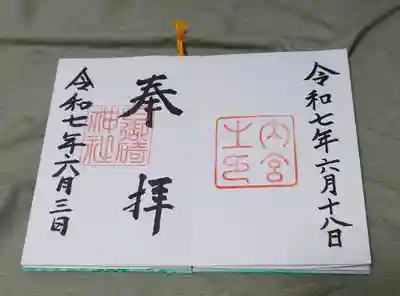 令和七年六月十八日
内宮
之印
奉拝
日御碕
神社
令和七年六月三日